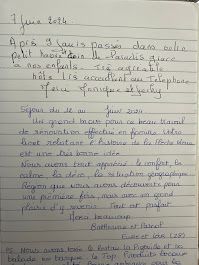 7 Juin 2024
Après 9 jours passés dans votre
petit havre coin de Paradis grâce
à nos enfants. Très agréable
hôte Très accueillant au Téléphone
Merci Monique et Jacky
Séjour du au Juin 2024
Un grand bravo pour ce beau travail
de rénovation effectué en famille. Votre
livret relatant l'histoire de la
est une très bonne idée.
Nous avons tout apprécié, le confort, le
calme, la déco, la situation géographique
Région que nous avons découverte pour
une première fois, mais avec un grand
plaisir d'y revenir. Tout est parfait
Merci beaucoup
et Pascal
Eure et Loir (28)
PS. Nous avons testé le Restau la et la
balade en barque. Top Produits locaux